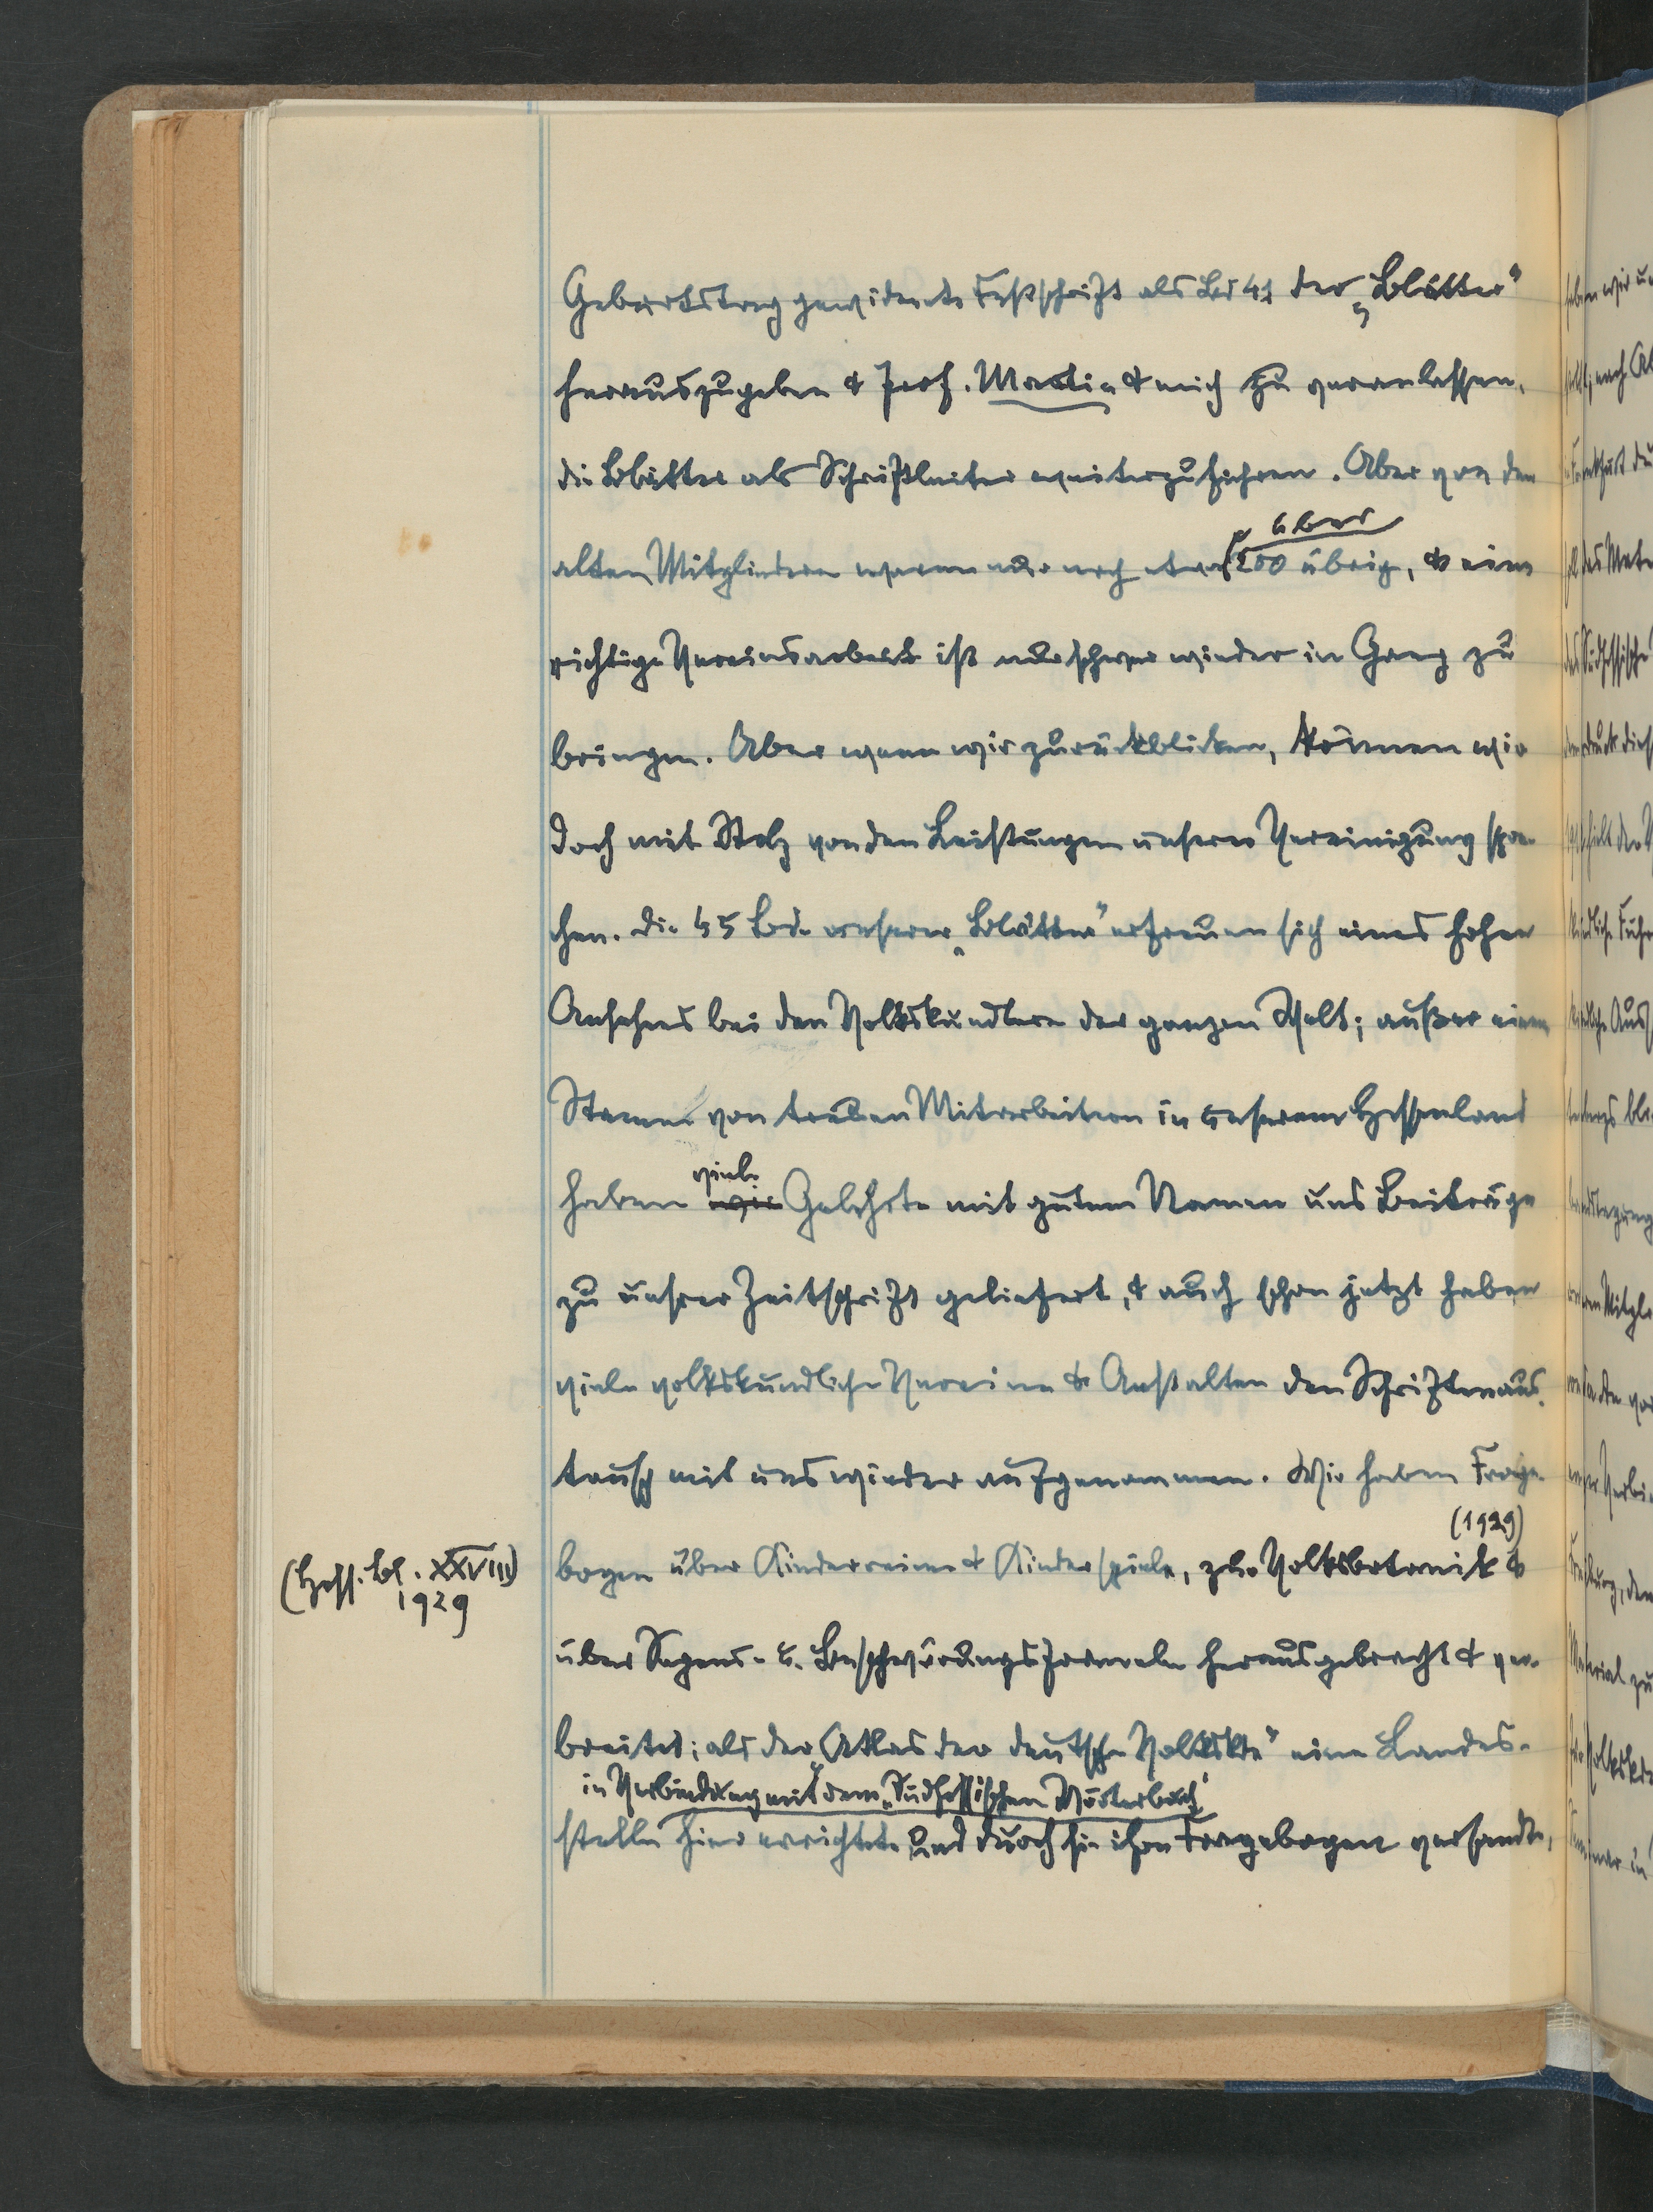 Geburtstag gewidmete Festschrift als Bd 41 der „Blätter"
herauszugeben & Prof. Martin & mich zu veranlassen,
die Blätter als Schriftleiter weiterzuführen. Aber von den
über
alten Mitgliedern waren nur noch etwa 200 übrig, & eine
richtige Vereinsarbeit ist nur schwer wieder in Gang zu
bringen. Aber wenn wir zurückblicken, können wir
doch mit Stolz von den Leistungen unserer Vereinigung spre-
chen. Die 45 Bde. unserer „Blätter" erfreuen sich eines hohen
Ansehens bei den Volkskundlern der ganzen Welt; außer einem
Stamm von treuen Mitarbeitern in unserem Hessenland
viele
haben wir Gelehrte mit gutem Namen uns Beiträge
zu unsrer Zeitschrift geliefert, & auch schon jetzt haben
viele volkskundliche Vereine & Anstalten den Schriftenaus-
tausch mit uns wieder aufgenommen. Wir haben Frage-
(1929)
bogen über Kinderreime & Kinderspiele, zur Volksbotanik &
(Hess. Bl. XXVIII)
1929
über Segens- u. Beschwörungsformeln herausgebracht & ver-
breitet; als der „Atlas der deutschen Volkskde" eine Landes-
in Verbindung mit dem „Südhessischen Wörterbuch"
stelle hier errichtete und durch sie ihre Fragebogen versandte,